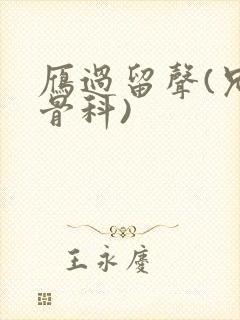 雁過留聲(兄
骨科)
王永慶